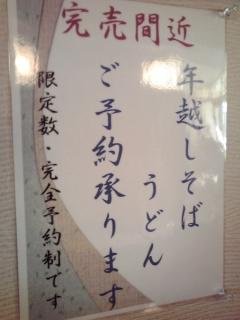 完売間近
年越しそば
うどん
ご予約承ります
限定数・完全予約制です